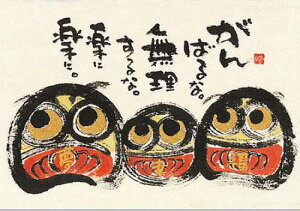 がん
ばるな。
無理
するな。
楽に
楽に。
夢
福